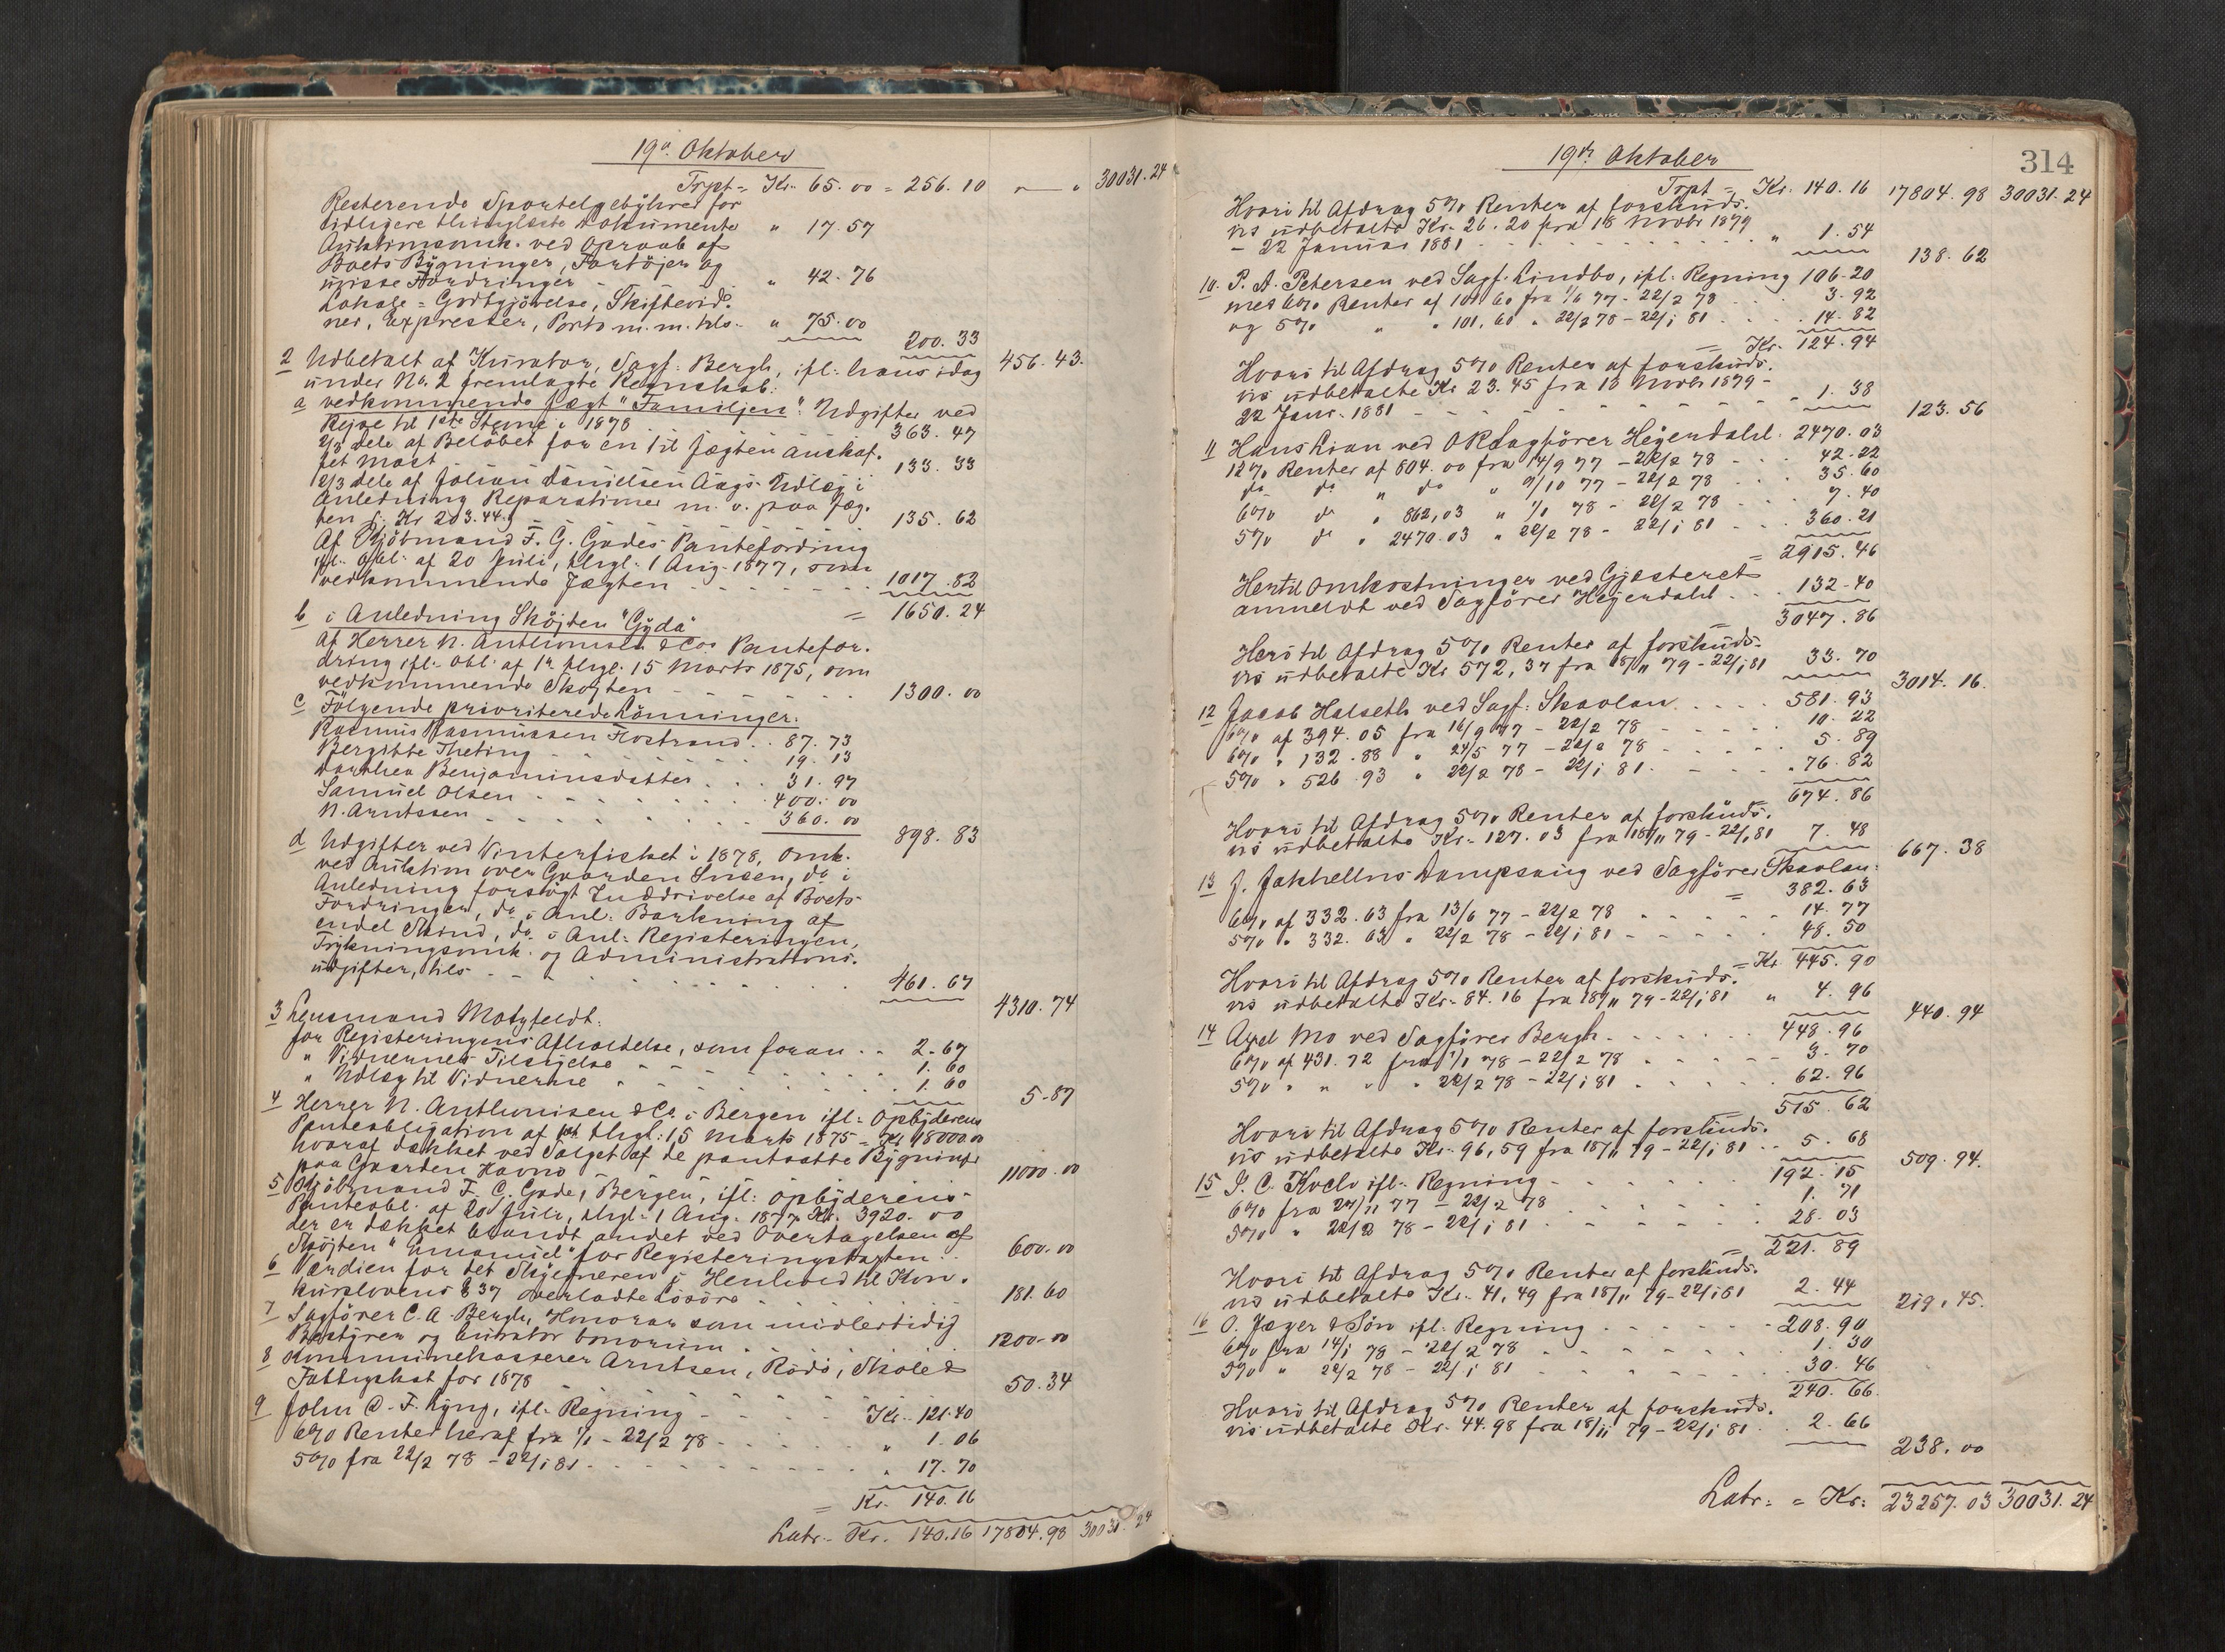 19de Oktober
Trpt = Kr. 65.00 = 256.10 " — " 30031.24
Resterende Sportelgebyhrer for
tidligere thinglæste Dokumenter " 17.57
Auktionsomk. ved Opraab af
Boets Bygninger, Fartöjer og
uvisse Fordringer - " 42.76
Lokale = Godtgjörelse, Skiftevid-
ner, Expresser, Porto m. m. tils. " 75.00
200.33
2 Udbetalt af Kurator, Sagf. Bergh, ifl. hans idag 456.43.
under No. 2 fremlagte Regnskab:
a vedkommende Jægt "Familjen": Udgifter ved
Rejse til 1ste Stevne i 1878 . . 363.47
2/3 dele af Belöbet for en til Jægten anskaf-
fet Mast - 133.33
2/3 dele af Johan Danielsen Aags Udlæg i
Anledning Reparationer m. v. paa Jæg-
ten f. Kr 203.44. - 135.62
Af Kjöbmand F. G. Gades Pantefordring
ifl. Obl. af 20 Juli, thgl. 1 Aug. 1877, som
vedkommende Jægten . . . . . . 1017.82
= 1650.24
b i Anledning Sköjten "Gyda"
af Herrer N. Anthonisen & Co. Pantefor-
dring ifl. Obl. af 1ste thgl. 15 Marts 1875, som
vedkommende Skojten - - - - - - 1300.00
c Fölgende prioriterede Lönninger:
Rasmus Rasmussen Flostrand . . 87.73
Bergitte Theting - - 19.13
Dorthea Benjaminsdatter . . . 31.97
Samuel Olsen . . . . . . 400.00
N. Arntssen - - - - - - 360.00
898.83
d Udgifter ved Vinterfisket i 1878, Omk.
ved Auktion over Gaarden Snsen, do i
Anledning forsögt Inddrivelse af Boets
Fordringer, do i Anl. Barkning af
endel Skind, do i Anl. Registeringen,
Trykningsomk. og Administrations-
udgifter, tils - - . . . . . . . . 461.67
4310.74
3 Lensmand Motzfeldt:
for Registeringens Afholdelse, som foran . . 2.67
" Vidnernes Tilsigelse - - - - 1.60
" Udlæg til Vidnerne . . . . . . 1.60
5.87
4 Herrer N. Anthonisen & Co. i Bergen ifl. Opbyderens
Panteobligation af 1ste thgl. 15 Marts 1875 = Kr 18000.00
hvoraf dækket ved Salget af de pantsatte Bygninger
paa Gaarden Havnö - - - 11000.00
5 Kjöbmand F. G. Gade, Bergen, ifl. Opbyderens
Panteobl. af 20 Juli, thgl. 1 Aug. 1877 Kr. 3920.00
der er dækket blandt andet ved Overtagelsen af
Skojten "Emanuel" for Registeringstaxten . . 600.00
6 Værdien for det Skyldneren i Henhold til Kon-
kurslovens § 37 overladte Lösöre - - - 181.60
7 Sagförer C. A. Bergh, Honorar som midlertidig
Bestyrer og Curator bonorum . . . . . . 1200.00
8 Kommunekasserer Arntsen, Rödö, Skole &
Fattigskat for 1878 - - - 50.34
9 John C. F. Lyng, ifl. Regning - - - - Kr. 121.40
6% Renter heraf fra 1/1 - 22/2 78 - - - - " 1.06
5% fra 22/2 78 - 22/1 81 - - - - - - " 17.70
= Kr. 140.16
Latr. Kr. 140.16 17804.98 30031.24
19de Oktober
314
Trpt = Kr. 140.16 17804.98 30031.24
Hvori til Afdrag 5% Renter af forskuds-
vis udbetalte Kr. 26.20 fra 18 Novbr 1879
- 22 Januar 1881 - - - - - - - - " 1.54
138.62
10. P. A. Petersen ved Sagf. Lindbo, ifl. Regning 106.20
med 6% Renter af 101.60 fra 1/6 77 - 22/2 78 . . . 3.92
og 5% " " 101.60 " 22/2 78 - 22/1 81 . . . . 14.82
= Kr. 124.94
Hvori til Afdrag 5% Renter af forskuds-
vis udbetalte Kr 23.45 fra 18 Novbr 1879 -
22 Janr. 1881 - - - - - - - - " 1.38
123.56
11 Hans Lian ved ORsagförer Hejerdahl. 2470.03
12% Renter af 804.00 fra 14/9 77 - 22/2 78 - . . 42.22
do do " do " 9/10 77 - 22/2 78 . . . 35.60
6% do " 862,03 " 1/1 78 - 22/2 78 - - - 7.40
5% do " 2470.03 " 22/2 78 - 22/1 81 - - . 360.21
= 2915.46
Hertil Omkostninger ved Gjæsteret
anmeldt ved Sagförer Hejerdahl . . . 132.40
= 3047.86
Heri til Afdrag 5% Renter af forskuds-
vis udbetalte Kr 572,37 fra 18/11 79 - 22/1 81 33.70
3014.16.
12 Jacob Halseth ved Sagf. Skavlan . . . . 581.93
6% af 394.05 fra 16/9 77 - 22/2 78 - - - - - 10.22
6% " 132.88 " 24/5 77 - 22/2 78 - - - - - 5.89
5% " 526.93 " 22/2 78 - 22/1 81 . - - - - . 76.82
= 674.86
Hvori til Afdrag 5% Renter af forskuds-
vis udbetalte Kr. 127.03 fra 18/11 79 - 22/1 81 7.48
667.38
13 J. Jakhellns Dampsaug ved Sagförer Skavlan:
= 382.63
6% af 332.63 fra 13/6 77 - 22/2 78 - - - - - 14.77
5% " 332.63 " 22/2 78 - 22/1 81 - - - - 48.50
= Kr 445.90
Hvori til Afdrag 5% Renter af forskuds-
vis udbetalte Kr. 84.16 fra 18/11 79 - 22/1 81 " 4.96
440.94
14 Axel Mo ved Sagförer Bergh - . . . . . 448.96
6% af 431.72 fra 1/1 78 - 22/2 78 . . . . - - 3.70
5% " " " " 22/2 78 - 22/1 81 . . . . . . 62.96
515.62
Hvori til Afdrag 5% Renter af forskuds-
vis udbetalte Kr. 96,59 fra 18/11 79 - 22/1 81 . . 5.68
509.94.
15 S. C. Koch ifl. Regning - - - - - - - 192.15
6% fra 27/11 77 - 22/2 78 . . . . . . . 1.71
5% " 22/2 78 - 22/1 81 . - - - - - - 28.03
= 221.89
Hvori til Afdrag 5% Renter af forskuds-
vis udbetalte Kr. 41,49 fra 18/11 79 - 22/1 81 2.44
219.45.
16 O. Jæger & Sön ifl. Regning . . . - - - - 208.90
6% fra 14/1 78 - 22/2 78 - - - - - - - 1.30
5% " 22/2 78 - 22/1 81 - - - - - . 30.46
240.66.
Hvori til Afdrag 5% Renter af forskuds-
vis udbetalte Kr. 44.98 fra 18/11 79 - 22/1 81 . . 2.66
238.00
Latr. = Kr: 23257.03 30031.24